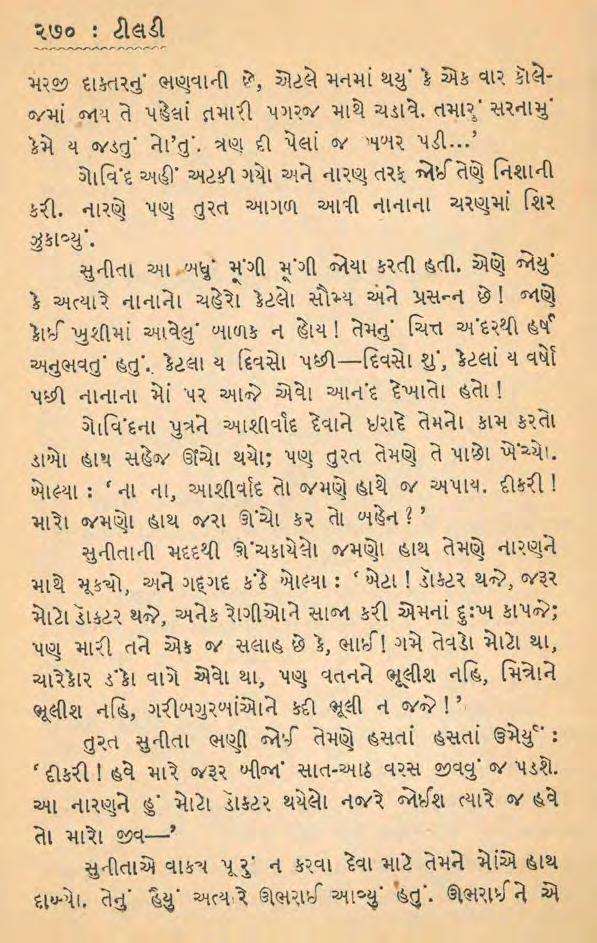 ૨૭૦ : ટીલડી
મરજી દાક્તરનું ભણવાની છે, એટલે મનમાં થયું કે એક વાર કૉલે-
જમાં જાય તે પહેલાં તમારી પગરજ માથે ચડાવે. તમારું સરનામું
કેમે ય જડતું નો'તું. ત્રણ દી પેલાં જ ખબર પડી...’
ગોવિંદ અહીં અટકી ગયો અને નારણ તરફ જોઈ તેણે નિશાની
કરી. નારણે પણ તુરત આગળ આવી નાનાના ચરણમાં શિર
ઝુકાવ્યું.
સુનીતા આ બધું મૂંગી મૂંગી જોયા કરતી હતી. એણે જોયું
કે અત્યારે નાનાનો ચહેરો કેટલો સૌમ્ય અને પ્રસન્ન છે! જાણે
કોઈ ખુશીમાં આવેલું બાળક ન હોય! તેમનું ચિત્ત અંદરથી હર્ષ
અનુભવતું હતું. કેટલા ય દિવસો પછી—દિવસો શું, કેટલાં ય વર્ષો
પછી નાનાના મોં પર આજે એવો આનંદ દેખાતો હતો!
ગોવિંદના પુત્રને આશીર્વાદ દેવાને ઇરાદે તેમનો કામ કરતો
ડાબો હાથ સહેજ ઊંચો થયો; પણ તુરત તેમણે તે પાછો ખેંચ્યો.
બોલ્યા : ‘ના ના, આશીર્વાદ તો જમણે હાથે જ અપાય. દીકરી!
મારો જમણો હાથ જરા ઊંચો કર તો બહેન?’
સુનીતાની મદદથી ઊંચકાયેલો જમણો હાથ તેમણે નારણને
માથે મૂક્યો, અને ગદ્ગદ કંઠે બોલ્યા : ‘બેટા! ડૉક્ટર થજે, જરૂર
મોટો ડૉક્ટર થજે, અનેક રોગીઓને સાજા કરી એમનાં દુઃખ કાપજે;
પણ મારી તને એક જ સલાહ છે કે, ભાઈ! ગમે તેવડો મોટો થા,
ચારેકોર ડંકો વાગે એવો થા, પણ વતનને ભૂલીશ નહિ, મિત્રોને
ભૂલીશ નહિ, ગરીબગુરબાંઓને કદી ભૂલી ન જજે!’
તુરત સુનીતા ભણી જોઈ તેમણે હસતાં હસતાં ઉમેર્યું :
‘દીકરી! હવે મારે જરૂર બીજાં સાત-આઠ વરસ જીવવું જ પડશે.
આ નારણને હું મોટો ડૉક્ટર થયેલો નજરે જોઈશ ત્યારે જ હવે
તો મારો જીવ—’
સુનીતાએ વાક્ય પૂરું ન કરવા દેવા માટે તેમને મોંએ હાથ
દાબ્યો. તેનું હૈયું અત્યારે ઊભરાઈ આવ્યું હતું. ઊભરાઈને એ